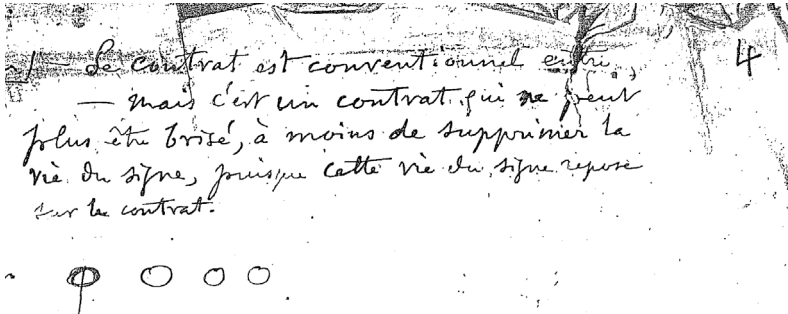 — Le contrat est conventionnel entre 4
— mais c'est un contrat qui ne peut
plus être brisé, à moins de supprimer la
vie du signe, puisque cette vie du signe repose
sur le contrat.